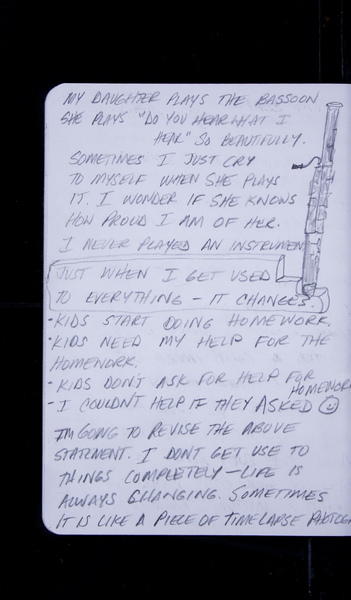 MY DAUGHTER PLAYS THE BASSOON
SHE PLAYS "DO YOU HEAR WHAT I
HEAR" SO BEAUTIFULLY.
SOMETIMES I JUST CRY
TO MYSELF WHEN SHE PLAYS
IT. I WONDER IF SHE KNOWS
HOW PROUD I AM OF HER.
I NEVER PLAYED AN INSTRUMEN
JUST WHEN I GET USED
TO EVERYTHING – IT CHANGES.
- KIDS START DOING HOMEWORK.
- KIDS NEED MY HELP FOR THE
HOMEWORK.
- KIDS DON'T ASK FOR HELP FOR
HOMEWORK
- I COULDN'T HELP IF THEY ASKED
I'M GOING TO REVISE THE ABOVE
STATEMENT. I DON'T GET USE TO
THINGS COMPLETELY – LIFE IS
ALWAYS CHANGING. SOMETIMES
IT IS LIKE A PIECE OF TIMELAPSE